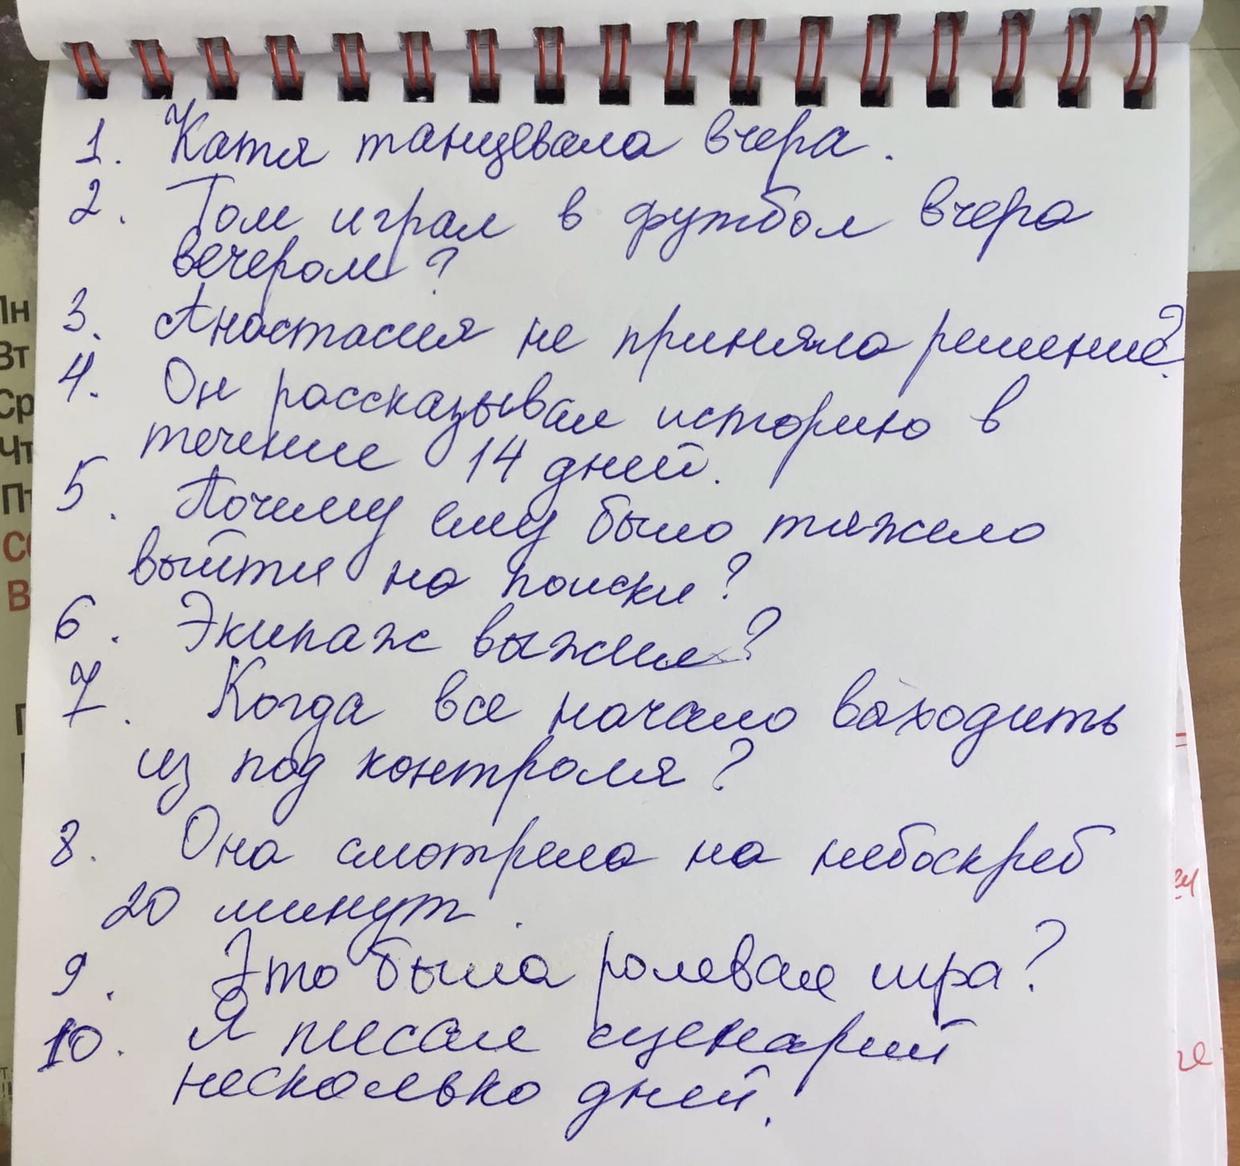 1. Катя танцевала вчера.
2. Том играл в футбол вчера
вечером?
3. Анастасия не приняла решение?
4. Он рассказывал историю в
течение 14 дней.
5. Почему ему было тяжело
выйти на поиски?
6. Экипаж выжил?
7. Когда все начало выходить
из под контроля?
8. Она смотрела на небоскреб
20 минут.
9. Это была ролевая игра?
10. Я писал сценарий
несколько дней.
Пн
Вт
Ср
Чт